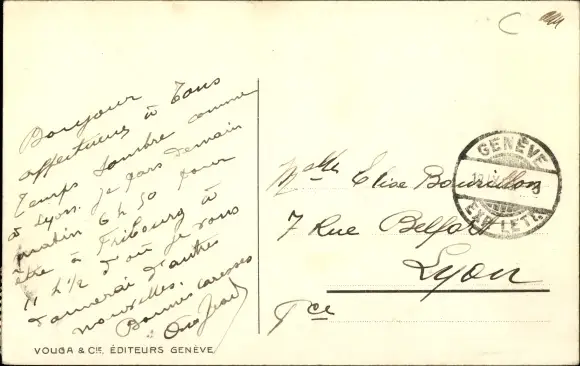 Bonjour
affectueux à Tous
Temps sombre comme
à Lyon. Je pars demain
matin 6 h 50 pour
être à Fribourg à
11 h 1/2 d'où je vous
donnerai d'autres
nouvelles.
Bonnes caresses
VOUGA & CIE, ÉDITEURS GENÈVE
GENÈVE
EXP. LETT.
Melle Elise
7 Rue Belfort
Lyon
Fce